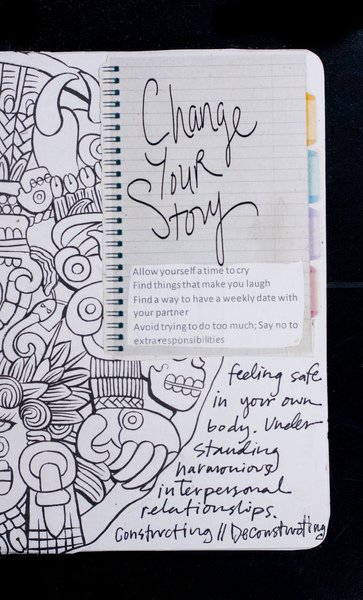 Change
Your
Story
Allow yourself a time to cry
Find things that make you laugh
Find a way to have a weekly date with
your partner
Avoid trying to do too much; Say no to
extra responsibilities
feeling safe
in your own
body. Under
standing
harmonious
interpersonal
relationships.
Constructing // Deconstructing